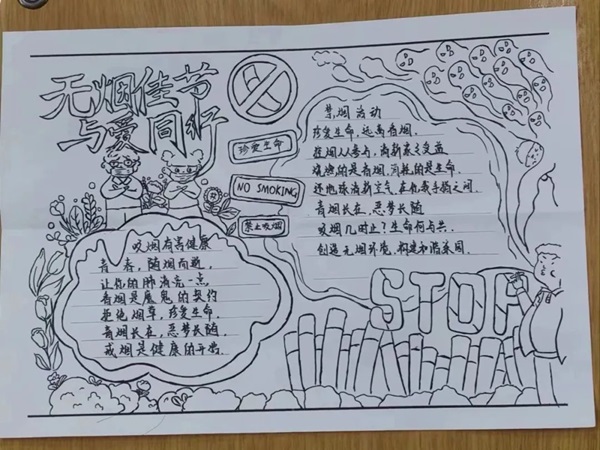 无烟佳节
与爱同行
珍爱生命
NO SMOKING
禁止吸烟
禁烟活动
珍爱生命,远离香烟.
控烟人人参与,清新众受益
燃烧的是香烟,消耗的是生命.
还地球清新空气在你我手指之间.
青烟长在,恶梦长随
吸烟几时止?生命何与共.
创造无烟环境,构建和谐家园.
吸烟有害健康
青春,随烟而逝.
让你的肺清亮一点
香烟是魔鬼的契约
拒绝烟草,珍爱生命.
青烟长在,恶梦长随.
戒烟是健康的开始.
STOP